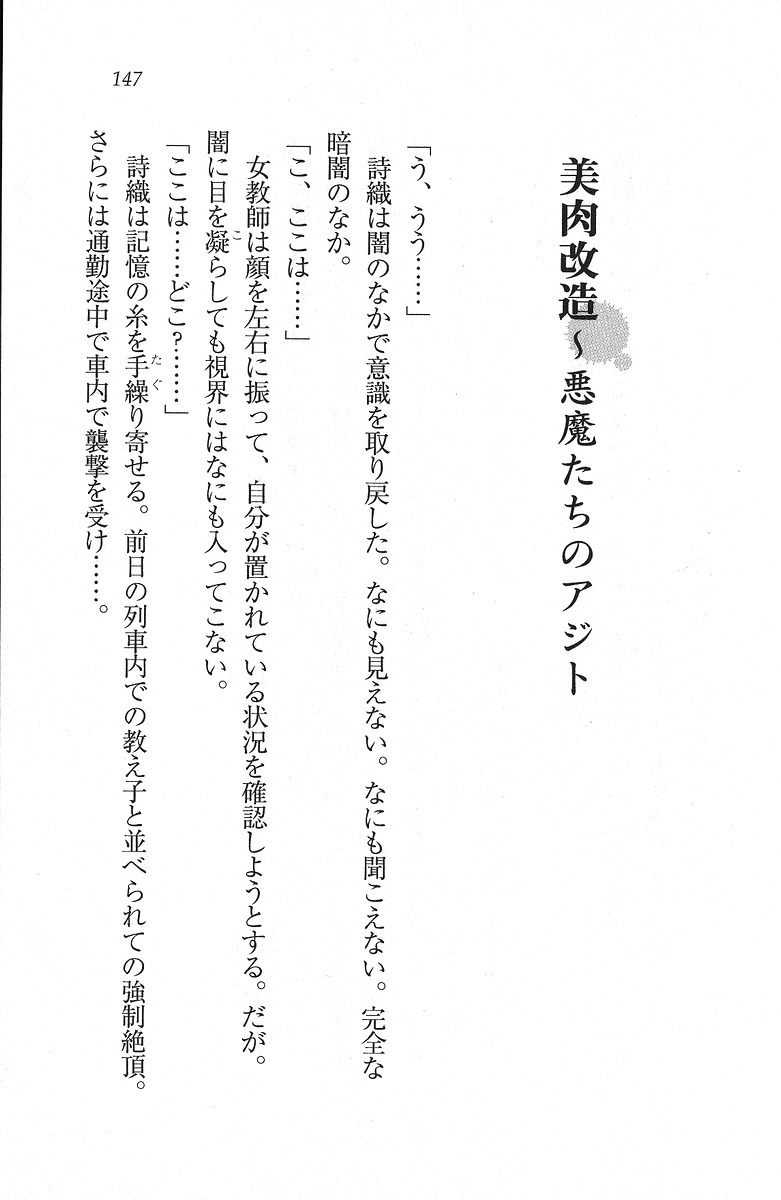 147
美肉改造～悪魔たちのアジト
「う、うう……」
　詩織は闇のなかで意識を取り戻した。なにも見えない。なにも聞こえない。完全な
暗闇のなか。
「こ、ここは……」
　女教師は顔を左右に振って、自分が置かれている状況を確認しようとする。だが。
闇に目を凝らしても視界にはなにも入ってこない。
「ここは……どこ？……」
　詩織は記憶の糸を手繰り寄せる。前日の列車内での教え子と並べられての強制絶頂。
さらには通勤途中で車内で襲撃を受け……。